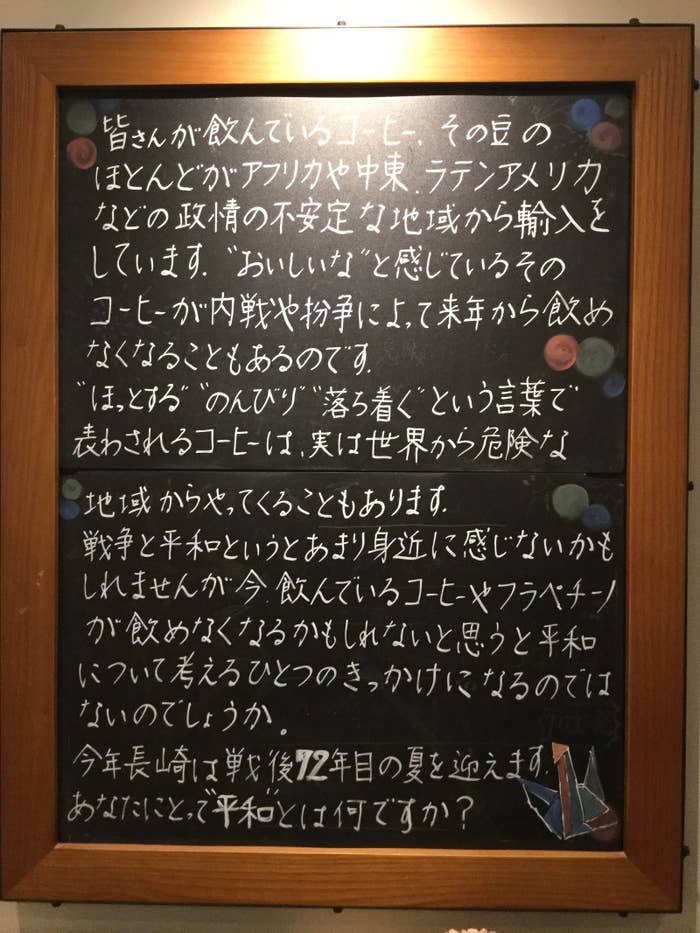 皆さんが飲んでいるコーヒー、その豆の
ほとんどがアフリカや中東、ラテンアメリカ
などの政情の不安定な地域から輸入を
しています。"おいしいな"と感じているその
コーヒーが内戦や紛争によって来年から飲め
なくなることもあるのです。
"ほっとする" "のんびり" "落ち着く"という言葉で
表わされるコーヒーは、実は世界から危険な
地域からやってくることもあります。
戦争と平和というとあまり身近に感じないかも
しれませんが今、飲んでいるコーヒーやフラペチーノ
が飲めなくなるかもしれないと思うと平和
について考えるひとつのきっかけになるのでは
ないのでしょうか。
今年長崎は戦後72年目の夏を迎えます。
あなたにとって"平和"とは何ですか？